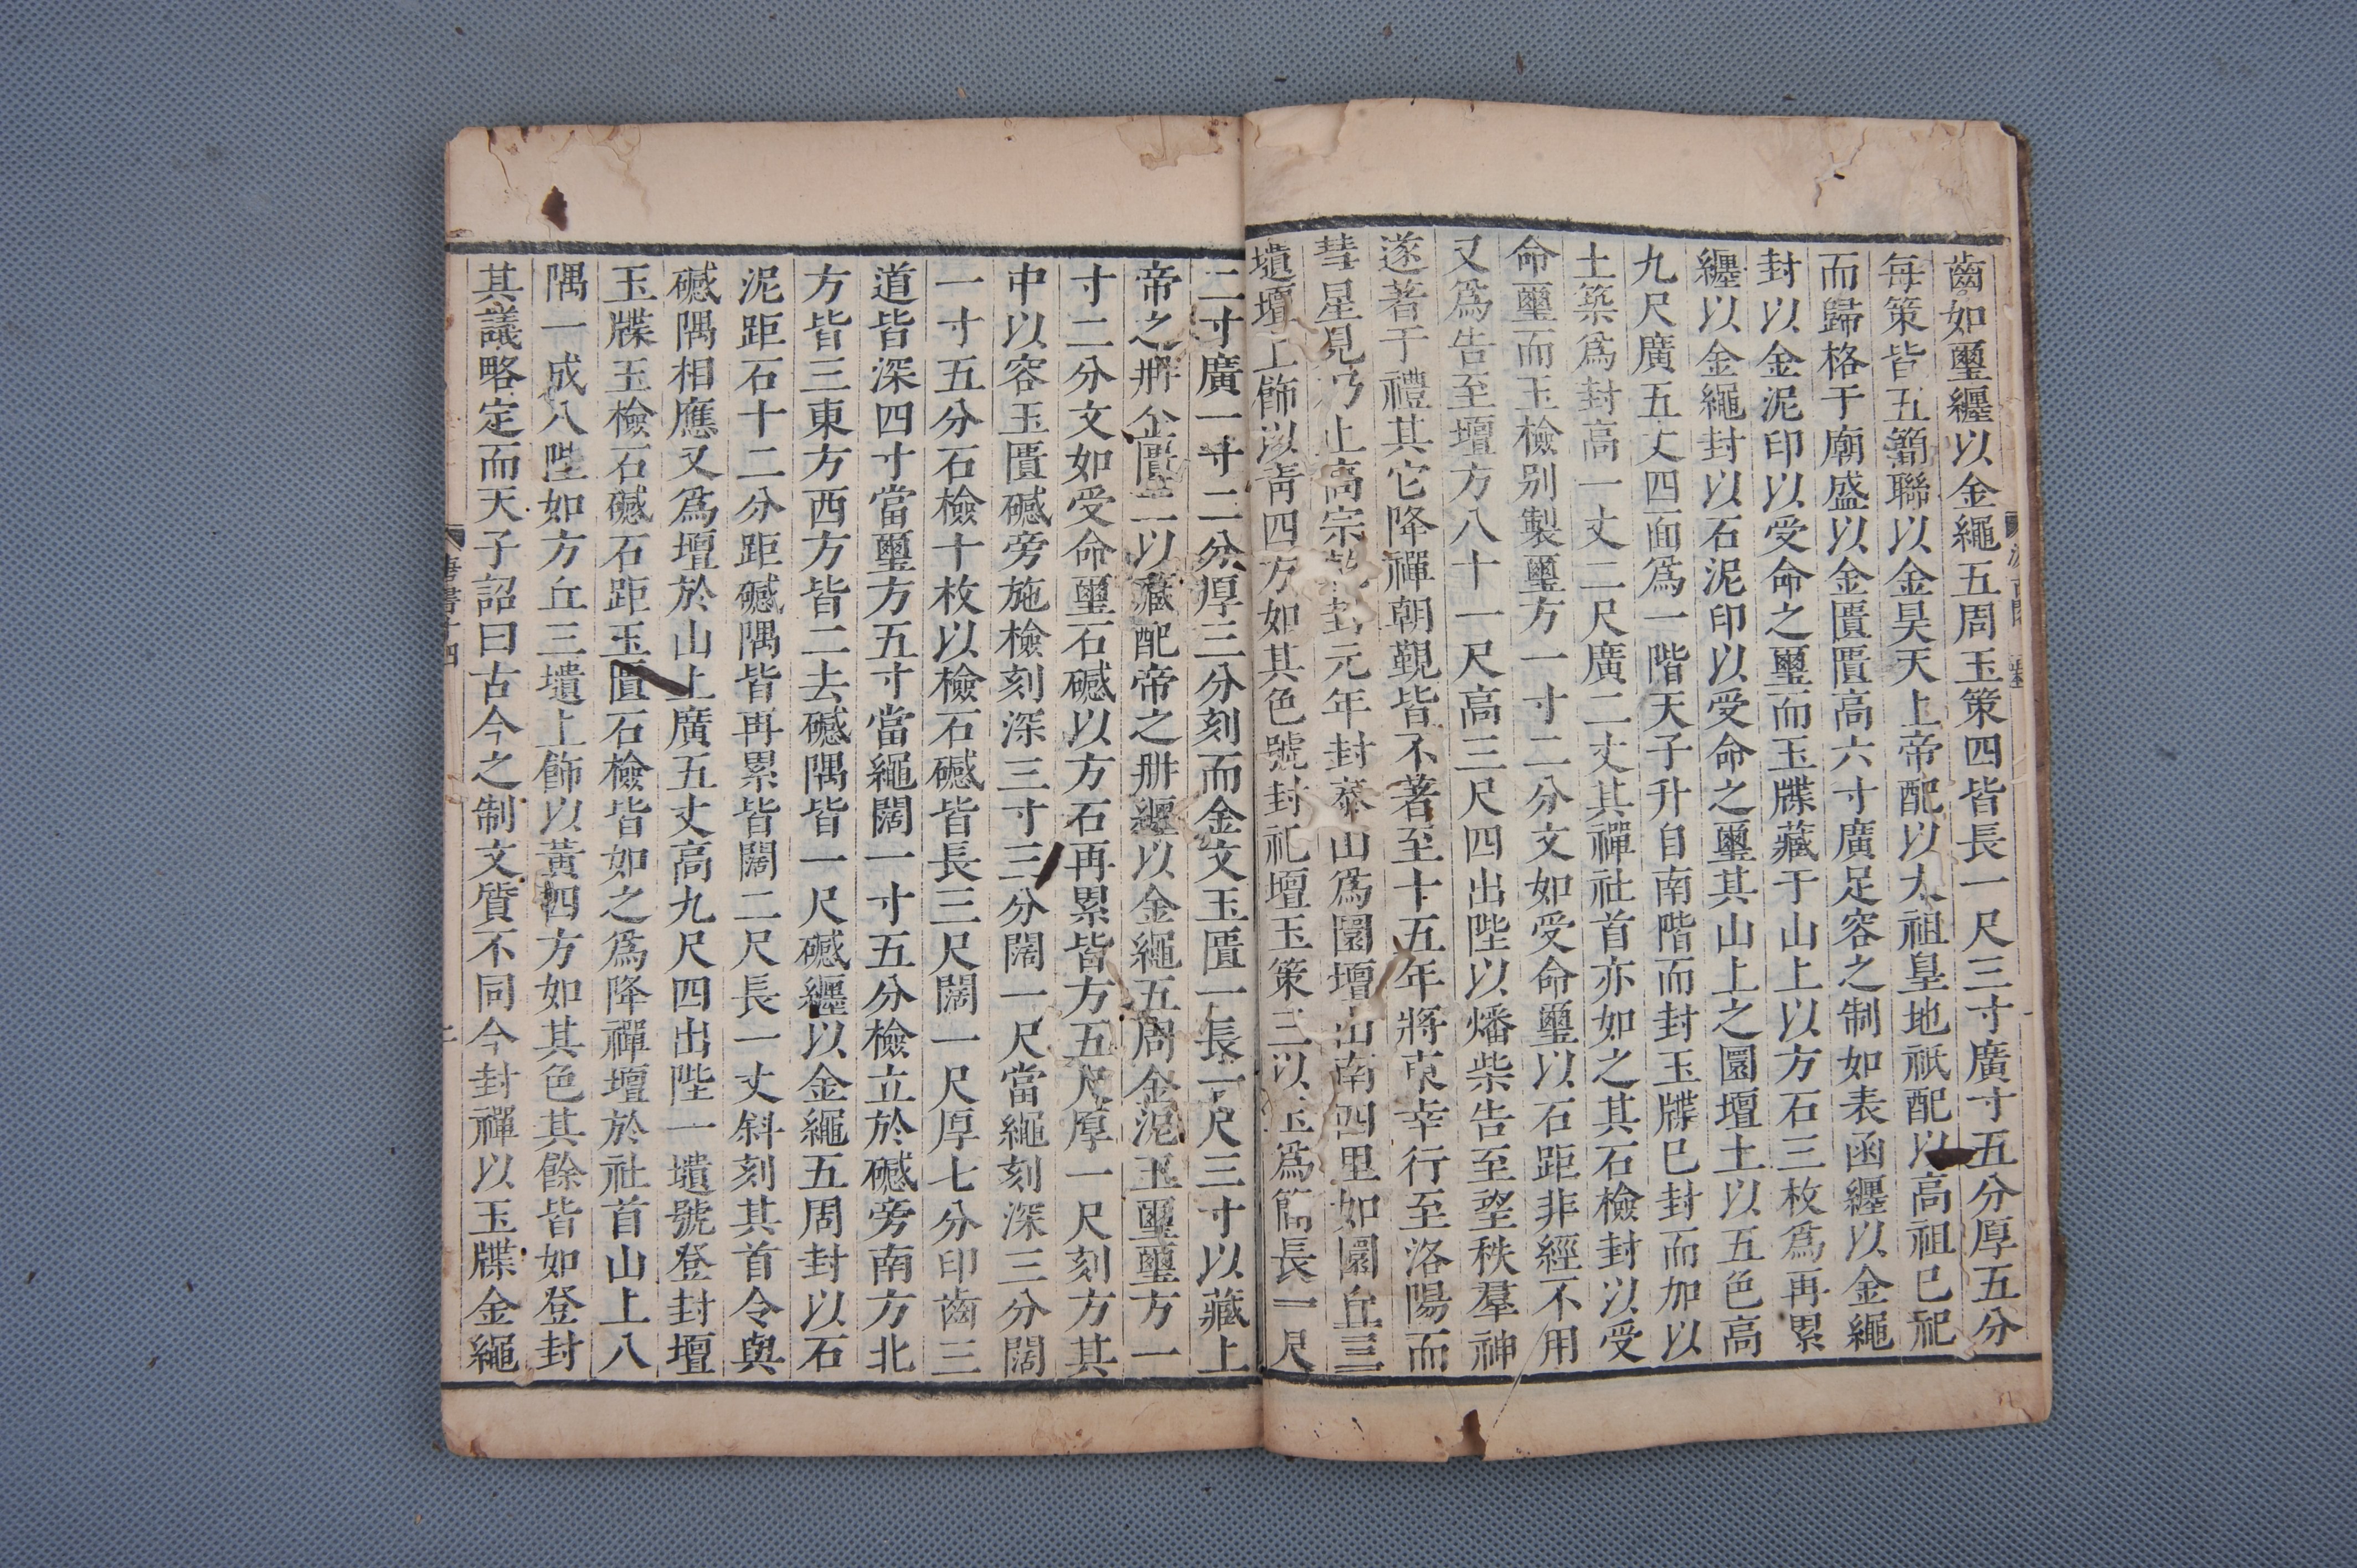 齒如璽纏以金繩五周玉策四皆長一尺三寸廣寸五分厚五分
每策皆五簡聯以金昊天上帝配以太祖皇地祇配以高祖巳祀
而歸格于廟盛以金匱匱高六寸廣足容之制如表函纏以金繩
封以金泥印以受命之璽而玉牒藏于山上以方石三枚爲再累
纏以金繩封以石泥印以受命之璽其山上之圜壇土以五色高
九尺廣五丈四面爲一階天子升自南階而封玉牒巳封而加以
土築爲封高一丈二尺廣二丈其禪社首亦如之其石檢封以受
命璽而玉檢别製璽方一寸二分文如受命璽以石距非經不用
又爲告至壇方八十一尺高三尺四出陛以燔柴告至望秩羣神
遂著于禮其它降禪朝覲皆不著至十五年將東幸行至洛陽而
彗星見乃止高宗乾封元年封泰山爲圜壇山南四里如圜丘三
壝壇上飾以靑四方如其色號封祀壇玉策三以玉爲簡長一尺
二寸廣一寸二分厚三分刻而金文玉匱一長一尺三寸以藏上
帝之册金匱二以藏配帝之册纏以金繩五周金泥玉璽璽方一
寸二分文如受命璽石䃭以方石再累皆方五尺厚一尺刻方其
中以容玉匱䃭旁施檢刻深三寸三分闊一尺當繩刻深三分闊
一寸五分石檢十枚以檢石䃭皆長三尺闊一尺厚七分印齒三
道皆深四寸當璽方五寸當繩闊一寸五分檢立於䃭旁南方北
方皆三東方西方皆二去䃭隅皆一尺䃭纏以金繩五周封以石
泥距石十二分距䃭隅皆再累皆闊二尺長一丈斜刻其首令與
䃭隅相應又爲壇於山上廣五丈高九尺四出陛一壝號登封壇
玉牒玉檢石䃭石距玉匱石檢皆如之爲降禪壇於社首山上八
隅一成八陛如方丘三壝上飾以黃四方如其色其餘皆如登封
其議略定而天子詔曰古今之制文質不同今封禪以玉牒金繩
唐書十四